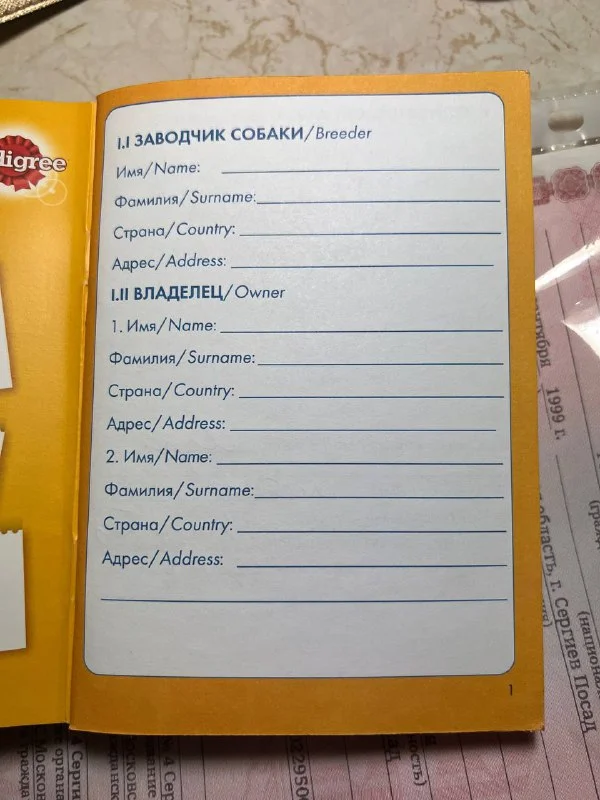 I.I ЗАВОДЧИК СОБАКИ/Breeder
Имя/Name:
Фамилия/Surname:
Страна/Country:
Адрес/Address:
I.II ВЛАДЕЛЕЦ/Owner
1. Имя/Name:
Фамилия/Surname:
Страна/Country:
Адрес/Address:
2. Имя/Name:
Фамилия/Surname:
Страна/Country:
Адрес/Address:
1
digree
1999 г.
область, г. Сергиев Посад